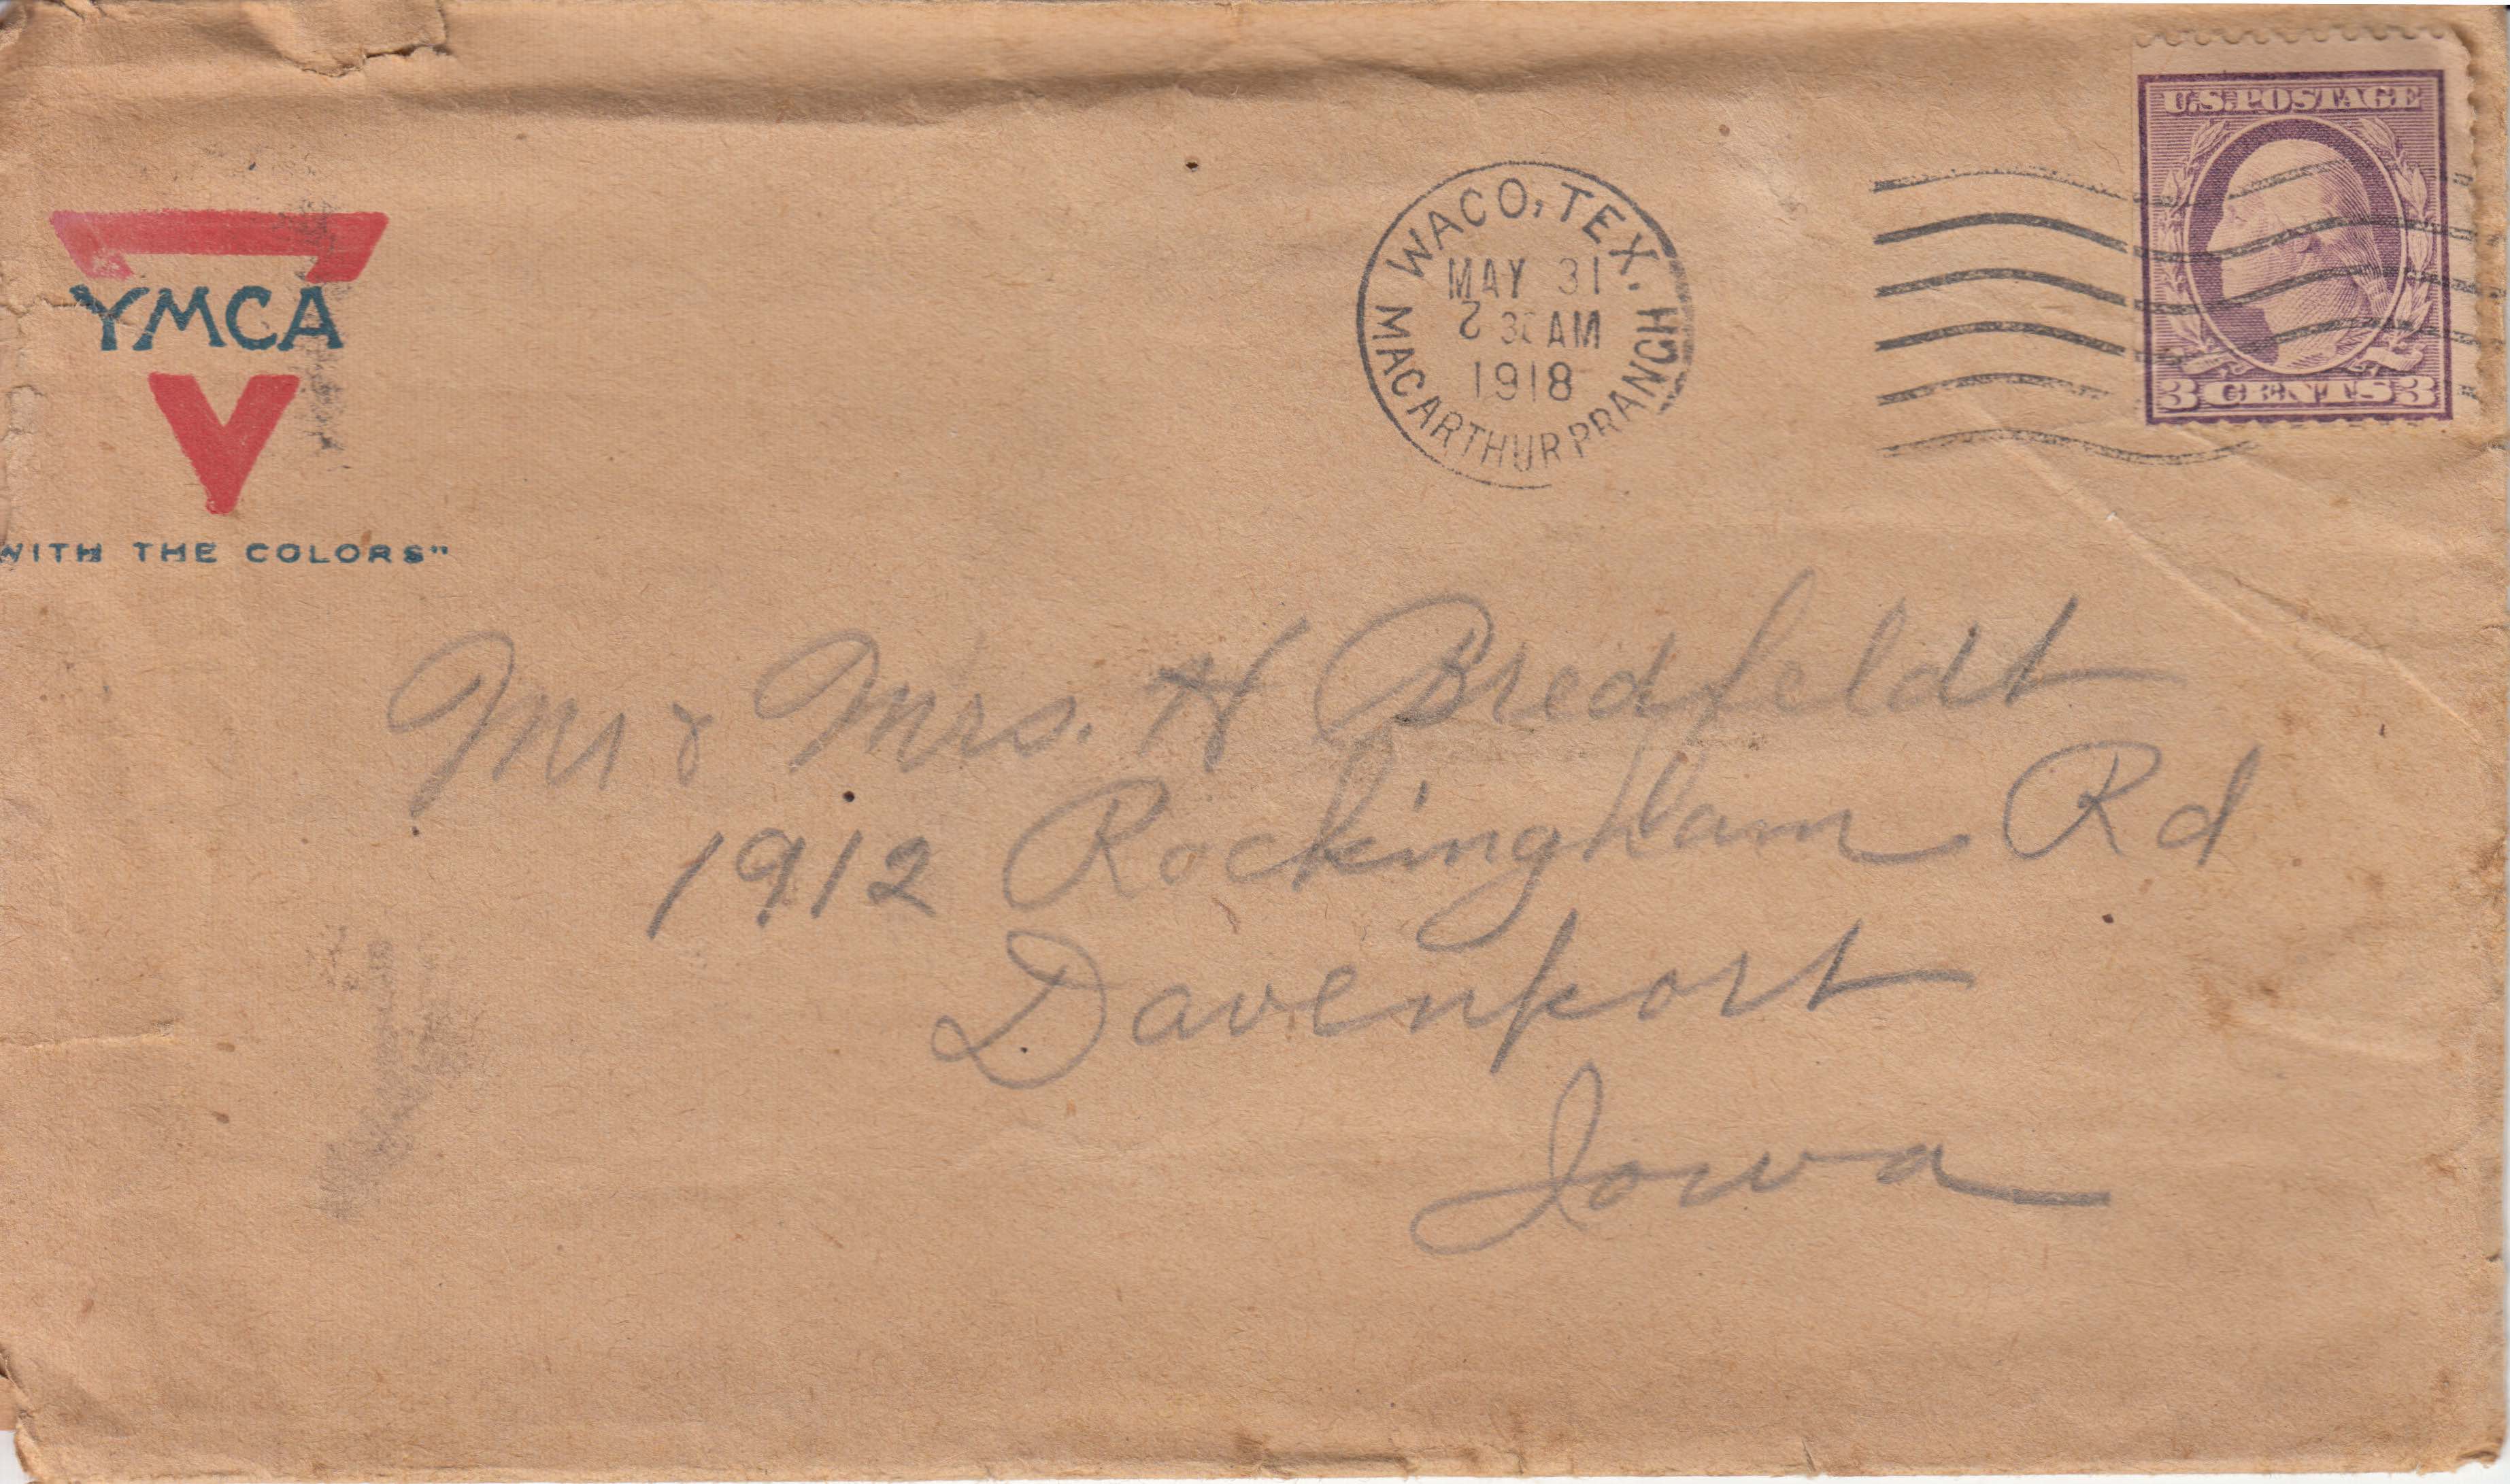 YMCA
WITH THE COLORS"
WACO, TEX.
MACARTHUR BRANCH
MAY 31
2 30 AM
1918
U.S. POSTAGE
3 CENTS 3
Mr & Mrs. H Bredfeldt
1912 Rockingham Rd
Davenport
Iowa